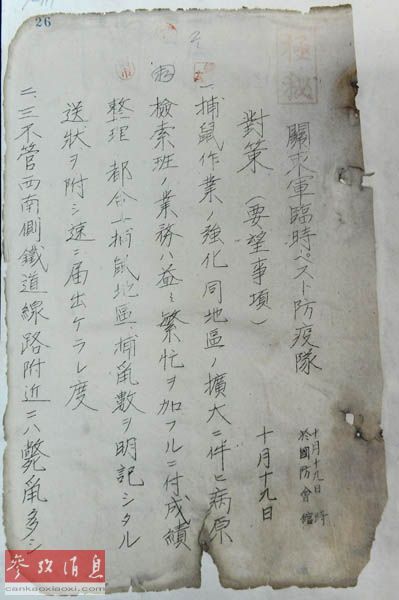 26
極秘
關東軍臨時ペスト防疫隊
十月十九日 時
於國防會館
對策(要望事項)
十月十九日
一、捕鼠作業ノ強化同地區ノ擴大ニ伴ヒ病原
檢索班ノ業務ハ益々繁忙ヲ加フルニ付成績
整理ノ都合上捕鼠地區、捕鼠數ヲ明記シタル
送狀ヲ附シ速ニ届出ケラレ度
二、三不管西南側鐵道線路附近ニハ斃鼠多シ
参攷消息
cankaoxiaoxi.com